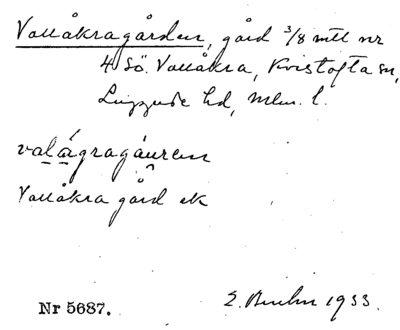 Vallåkragården, gård 3/8 mtl nr
4 Sö. Vallåkra, Kvistofta sn,
Luggude hd, Mlm. l.
valágragáuren
Vallåkra gård ek
Nr 5687. 1933.